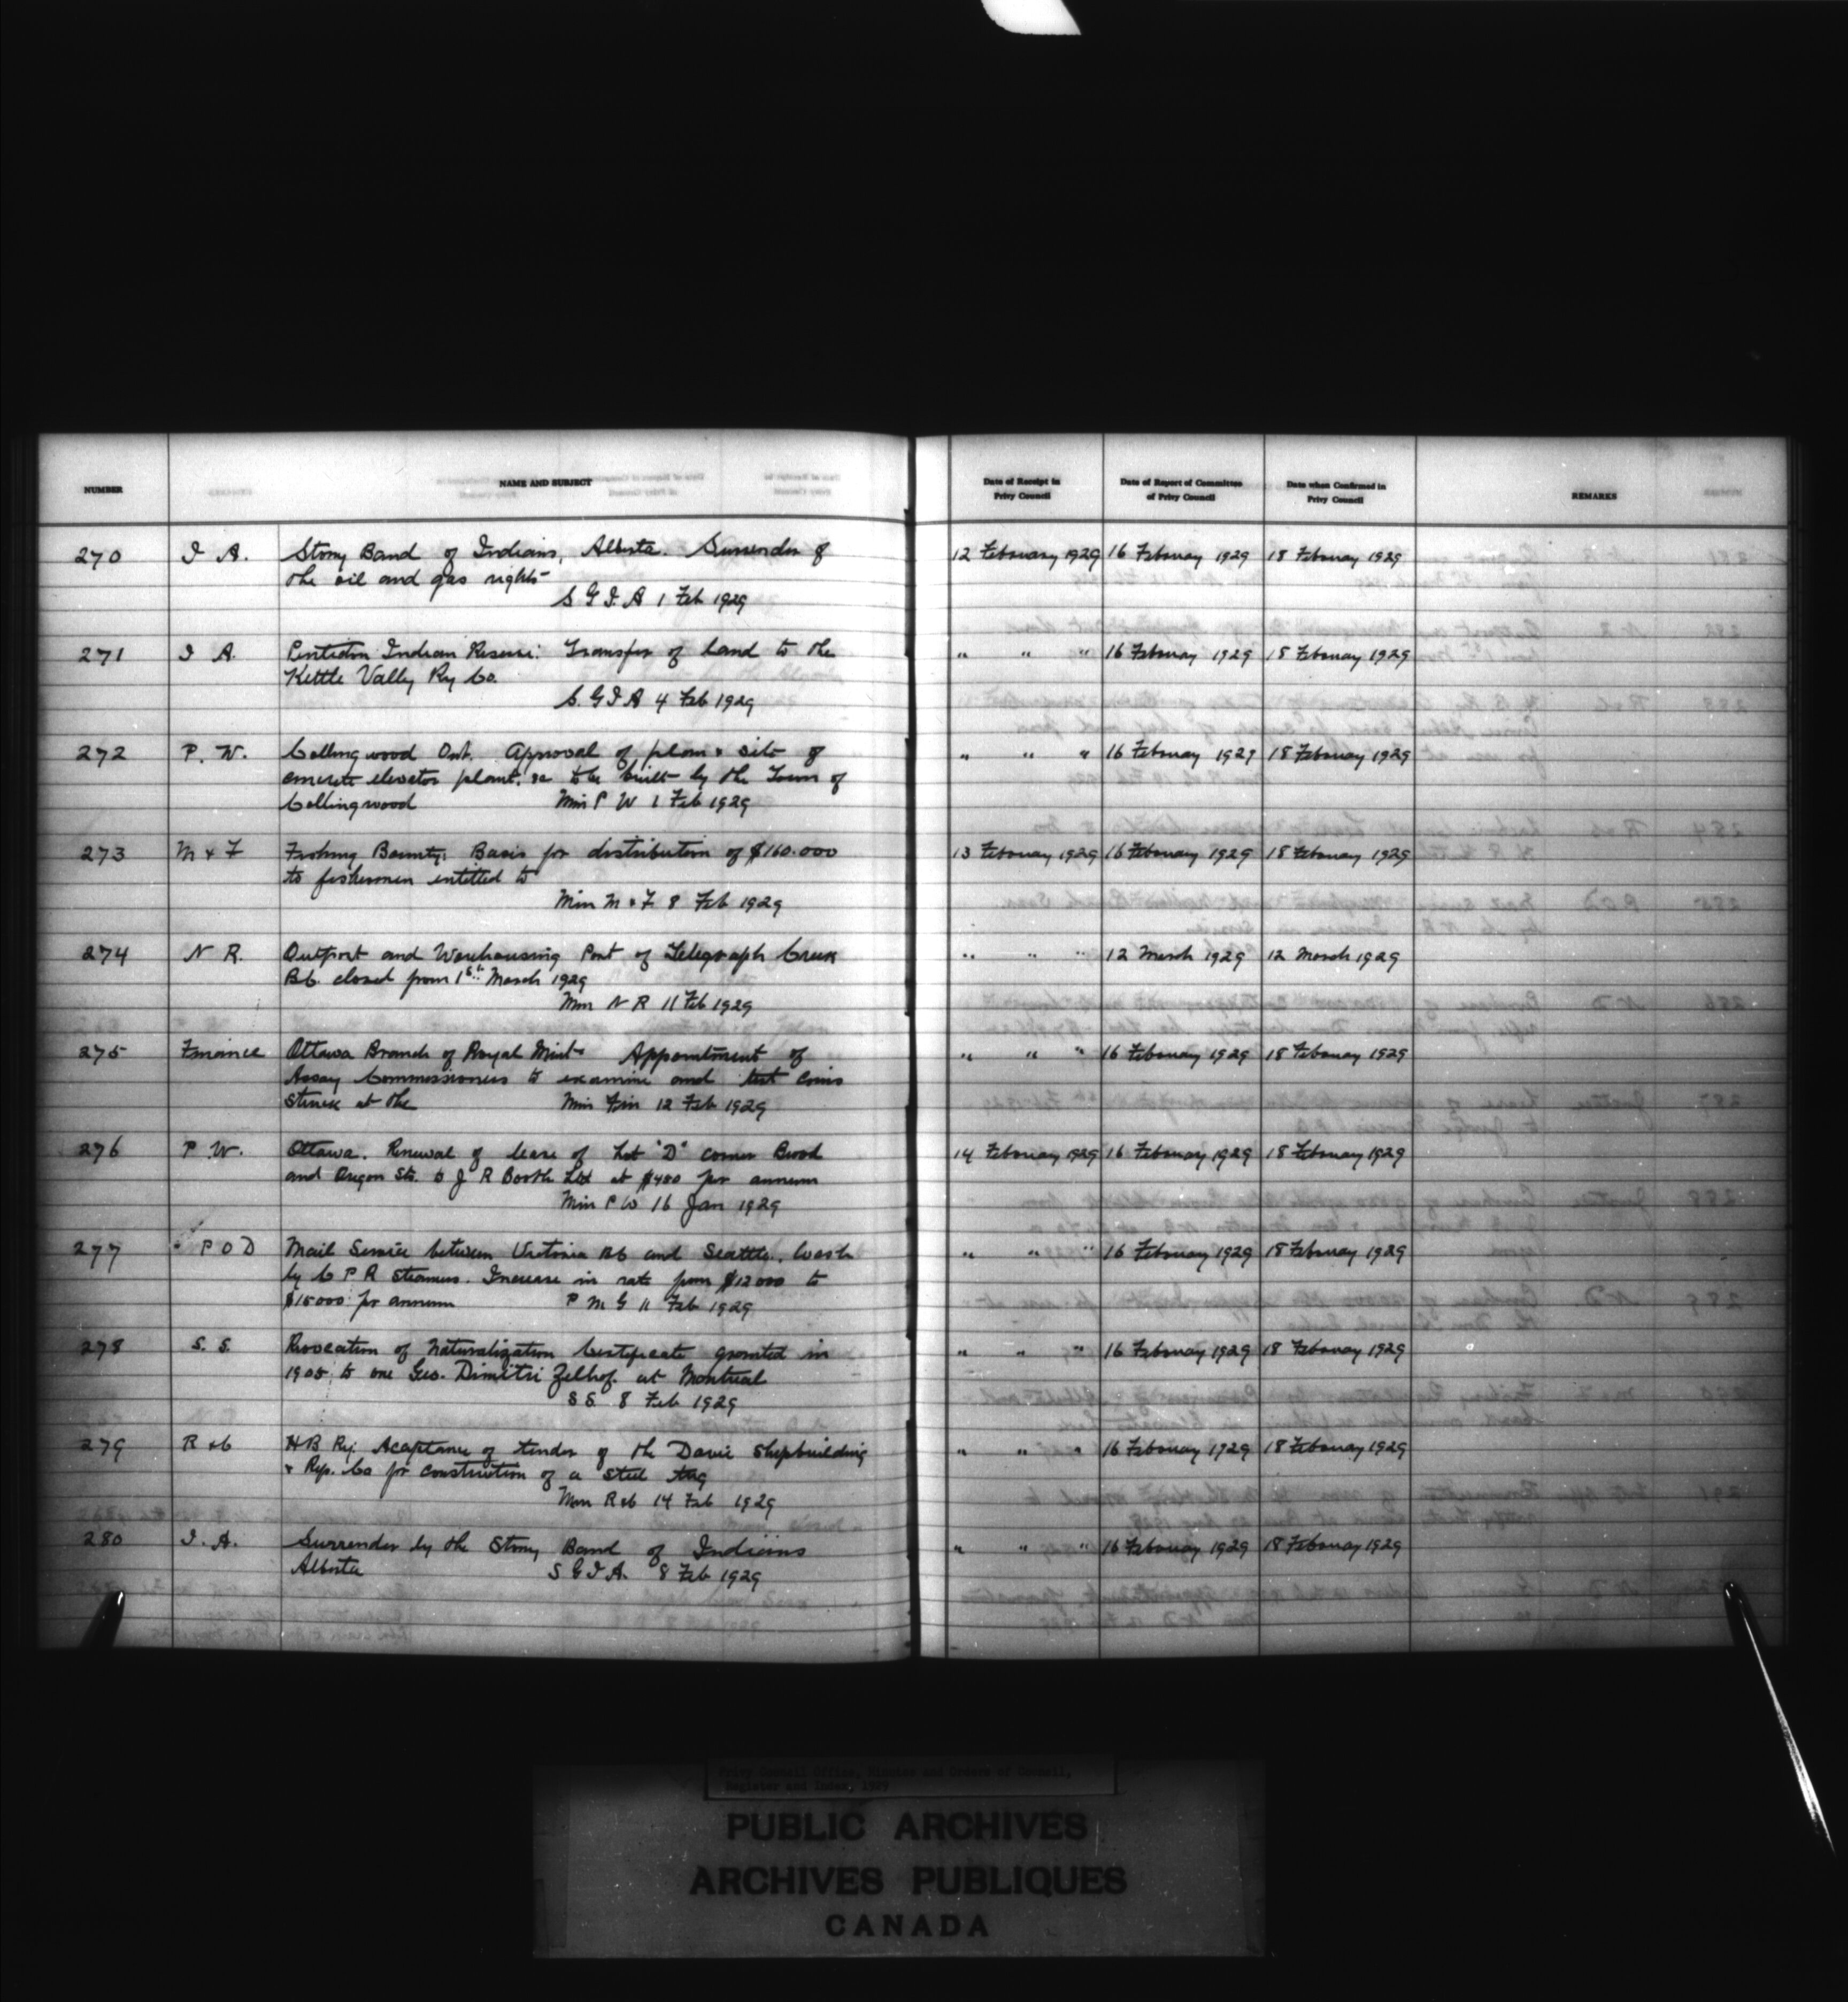 NUMBER NAME AND SUBJECT Date of Receipt in Privy Council Date of Report of Committee of Privy Council Date when Confirmed in Privy Council REMARKS
270 I A. Stony Band of Indians, Alberta. Surrender of 12 February 1929 16 February 1929 18 February 1929
the oil and gas rights
S G I. A 1 Feb 1929
271 I A. Penticton Indian Reserve: Transfer of land to the " " " 16 February 1929 18 February 1929
Kettle Valley Ry Co.
S. G I A 4 Feb 1929
272 P. W. Collingwood Ont. Approval of plans & site of " " " 16 February 1929 18 February 1929
concrete elevator plant. &c to be built by the Town of
Collingwood Min P W 1 Feb 1929
273 M & F Fishing Bounty: Basis for distribution of $160.000 13 February 1929 16 February 1929 18 February 1929
to fishermen entitled to
Min M & F 8 Feb 1929
274 N R. Outport and Warehousing Port of Telegraph Creek " " " 12 March 1929 12 March 1929
B.C. closed from 1st March 1929
Min N R 11 Feb 1929
275 Finance Ottawa Branch of Royal Mint Appointment of " " " 16 February 1929 18 February 1929
Assay Commissioners to examine and test coins
struck at the Min Fin 12 Feb 1929
276 P W. Ottawa. Renewal of lease of Lot "D" corner Broad 14 February 1929 16 February 1929 18 February 1929
and Oregon Sts. to J R Booth Ltd at $480 per annum
Min P W 16 Jan 1929
277 P O D Mail Service between Victoria BC and Seattle. Wash " " " 16 February 1929 18 February 1929
by C P R Steamers. Increase in rate from $12 000 to
$15000 per annum P M G 11 Feb 1929
278 S. S. Revocation of Naturalization Certificate granted in " " " 16 February 1929 18 February 1929
1905 to one Geo. Dimitri Zelhof at Montreal
S S. 8 Feb 1929
279 R & C H B Ry: Acceptance of tender of the Davie Shipbuilding " " " 16 February 1929 18 February 1929
& Rep. Co for construction of a steel tug
Min R & C 14 Feb 1929
280 I. A. Surrender by the Stony Band of Indians " " " 16 February 1929 18 February 1929
Alberta S G I A. 8 Feb 1929
Privy Council Office, Minutes and Orders of Council,
Register and Index, 1929
PUBLIC ARCHIVES
ARCHIVES PUBLIQUES
CANADA